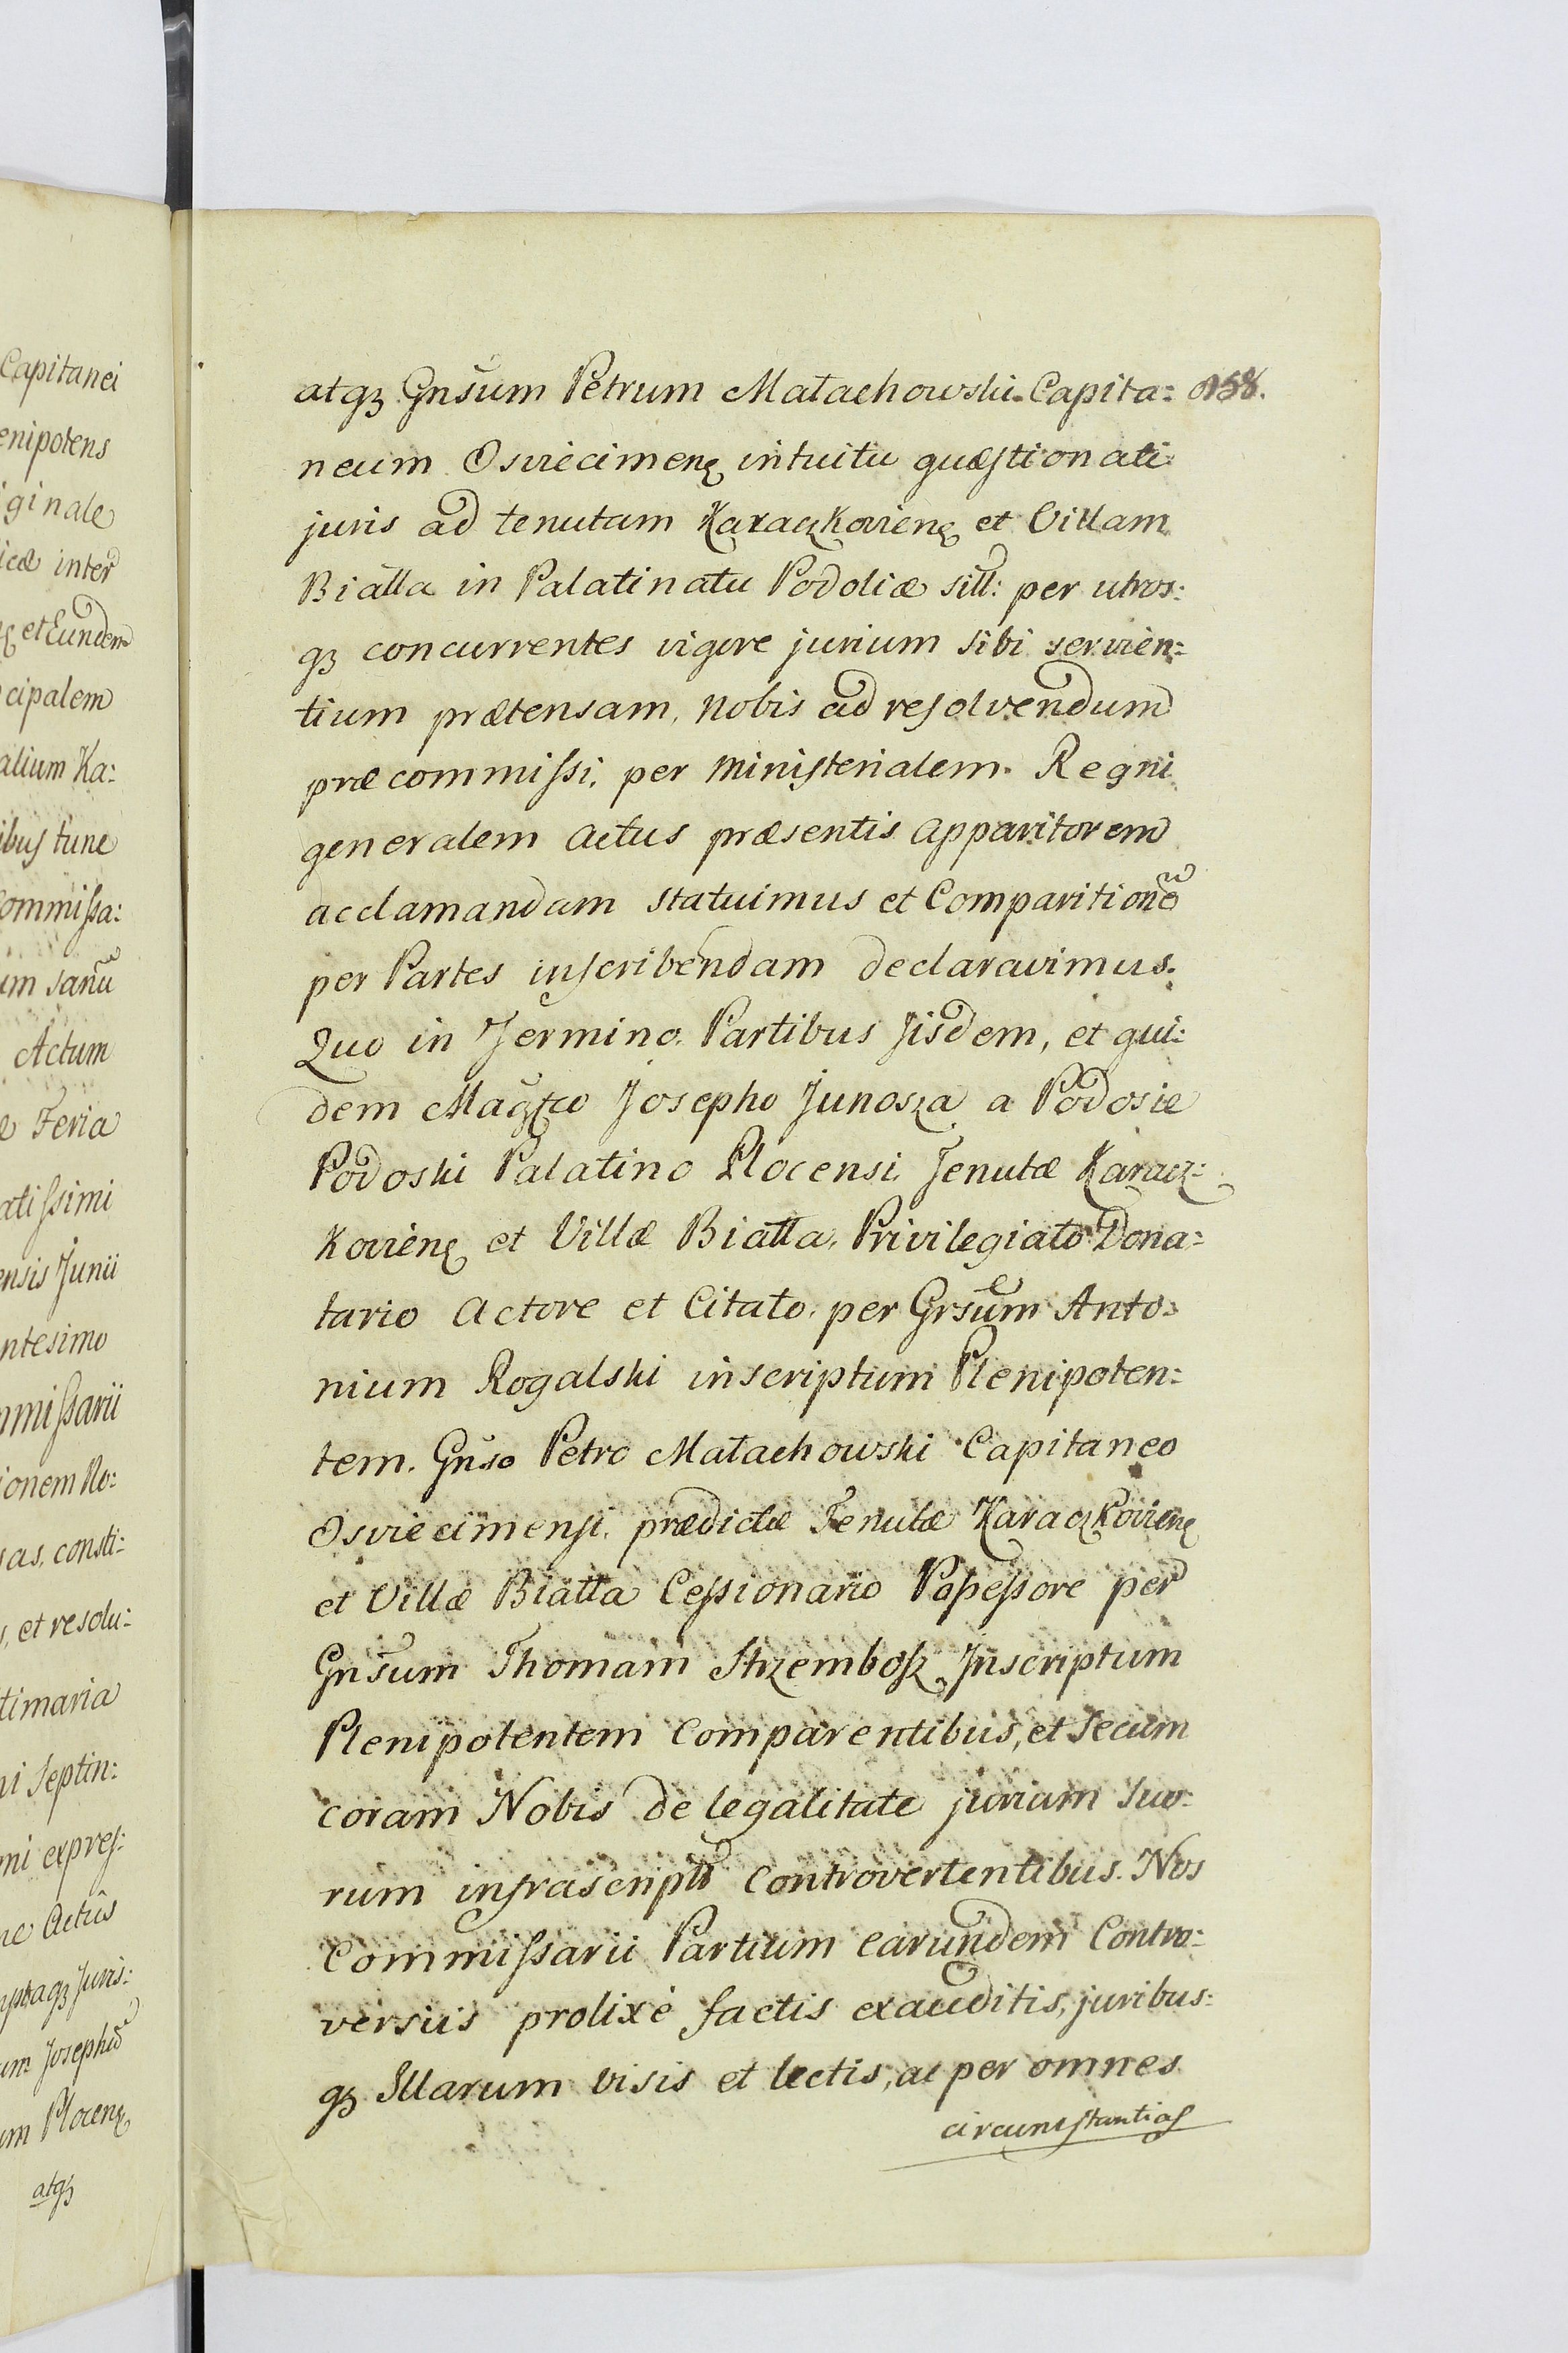 Capitanei
enipotens
iginale
icæ inter
et Eundem
cipalem
alium Ka:
ibus tunc
ommissa:
um sanū
Actum
e Feria
atissimi
ensis Junii
ntesimo
mmissarii
ionem Re:
sas, consti:
s, et resolu:
timaria
ni Septin:
mi expres:
ne Actûs
mptaqꝫ Juris:
um Josephū
um Plocenꝭ
atqꝫ
atqꝫ Gnsum Petrum Małachowski Capita: 158.
neum Osviecimenꝭ intuitu quæstionati
juris ad tenutam Karaczkovienꝭ et Villam
Bialla in Palatinatu Podoliæ sitt: per utros:
qꝫ concurrentes vigore jurium sibi servien:
tium prætensam, nobis ad resolvendum
præcommissi, per ministerialem Regni
generalem actus præsentis apparitorem
acclamandam statuimus et Comparitionē
per Partes inscribendam declaravimus.
Quo in Termino Partibus iisdem, et qui:
dem Magfco Josepho Junosza a Podosie
Podoski Palatino Plocensi Tenutæ Karacz:
kovienꝭ et Villæ Biatta, Privilegiato Dona:
tario Actore et Citato per Gnsum Anto:
nium Rogalski inscriptum Plenipoten:
tem. Gnso Petro Małachowski Capitaneo
Osviecimensi, prædictæ Tenutæ Karaczkovienꝭ
et Villæ Biatta Cessionario Possessore per
Gnsum Thomam Strzembosz Inscriptum
Plenipotentem Comparentibus, et secum
coram Nobis de legalitate jurium suo:
rum infrascriptū Controvertentibus. Nos
Commissarii Partium earundem Contro:
versiis prolixè factis exauditis, juribus:
qꝫ Illarum visis et lectis, ac per omnes
circumstantias